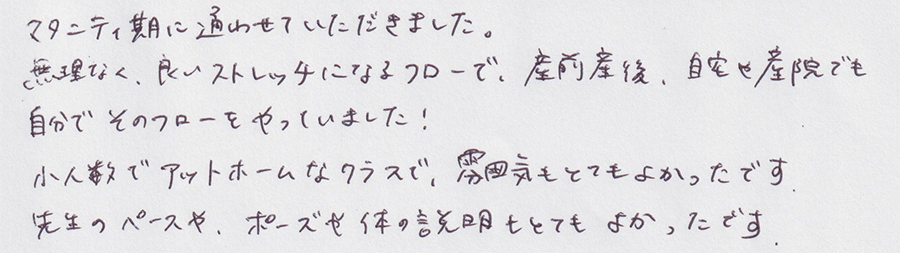 マタニティ期に通わせていただきました。
無理なく、良いストレッチになるフローで、産前産後、自宅や産院でも
自分でそのフローをやっていました!
小人数でアットホームなクラスで、雰囲気もとてもよかったです.
先生のペースや、ポーズや体の説明もとてもよかったです.